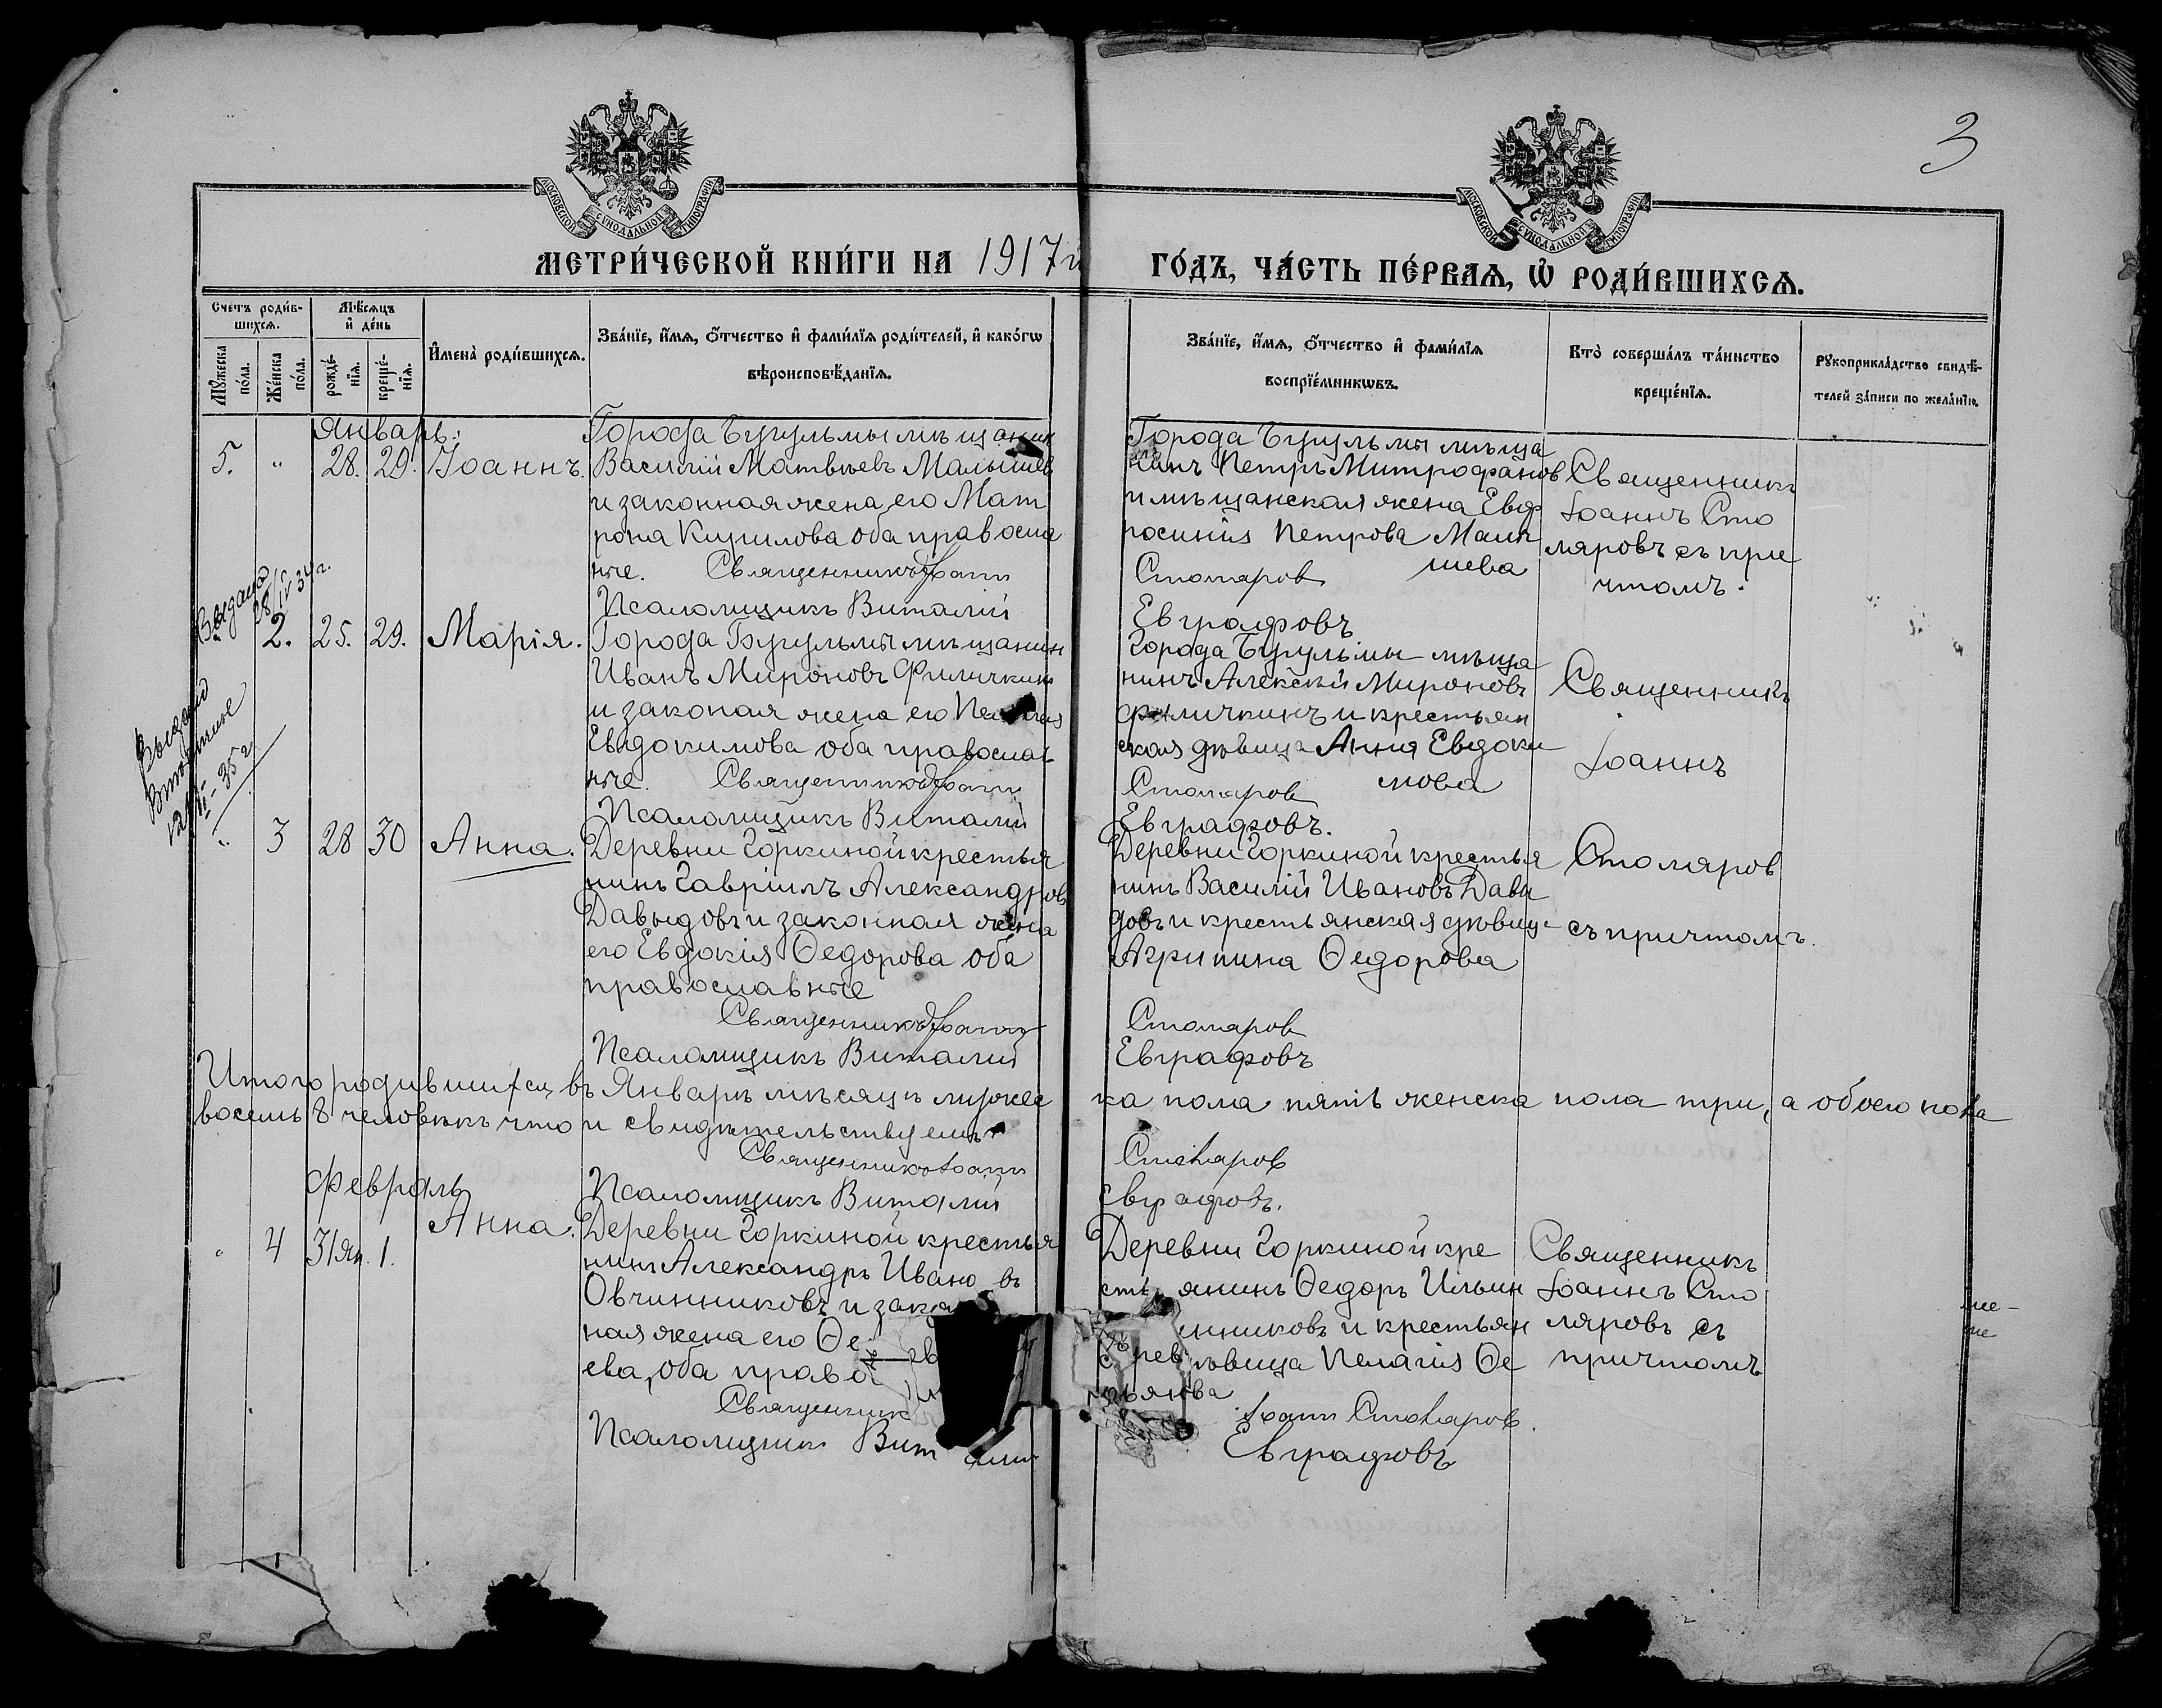 3
МОСКОВСКОЙ СѴНОДАЛЬНОЙ ТИПОГРАФІИ
МОСКОВСКОЙ СѴНОДАЛЬНОЙ ТИПОГРАФІИ
МЕТРИ́ЧЕСКОЙ КНИ́ГИ НА 1917й ГО́ДЪ, ЧА́СТЬ ПЕ́РВАѦ, Ѡ҆ РОДИ́ВШИХСѦ.
Счетъ роди́в-
шихсѧ.
Мѣ́сѧцъ
и҆ де́нь
Мꙋ́жеска
по́ла.
Же́нска
по́ла.
рожде́-
нїѧ.
креще́-
нїѧ.
И҆мена̀ роди́вшихсѧ.
Зва́нїе, и҆́мѧ, ѻ҆́тчество и҆ фами́лїѧ роди́телей, и҆ како́гѡ
вѣроисповѣ́данїѧ.
Зва́нїе, и҆́мѧ, ѻ҆́тчество и҆ фами́лїѧ
воспрїе́мникѡвъ.
Кто̀ соверша́лъ та́инство
креще́нїѧ.
Рꙋкоприкла́дство свидѣ́-
телей за́писи по жела́нїю.
Январь.
5. " 28. 29. Іоаннъ.
Города Бугульмы мѣщанин
Василій Матвѣевъ Малышев
и законная жена его Мат
рона Кирилова оба правосла
ные. Священникъ Іоанн
Псаломщикъ Виталій
Города Бугульмы мѣща
нинъ Петръ Митрофанов
и мѣщанская жена Евф
росинія Петрова Малы
шева
Столяров
Евграфовъ
Священникъ
Іоаннъ Сто
ляровъ съ при
чтомъ.
Выдана
28/IV 34 г.
" 2. 25. 29. Марія.
Города Бугульмы мѣщанин
Иванъ Мироновъ Филичкин
и законая жена его
Евдокимова оба правосла
ные. Священникъ Іоанн
Псаломщикъ Виталій
Города Бугульмы мѣща
нинъ Алексѣй Мироновъ
Филичкинъ и крестьян
ская дѣвица Анна Евдоки
мова
Столяров
Евграфовъ.
Священникъ
Іоаннъ
35 г.
" 3 28 30 Анна.
Деревни Горкиной крестья
нинъ Гавріилъ Александров
Давыдовъ и законная жена
его Евдокія Ѳедорова оба
православные
Священникъ Іоаннъ
Псаломщикъ Виталій
Деревни Горкиной крестья
нинъ Василій Ивановъ Давы
довъ и крестьянская дѣвиц
Агрипина Ѳедорова
Столяров
Евграфовъ
Столяров
съ причтомъ.
Итого родившихся въ Январѣ мѣсяцѣ мужес ка пола пять женска пола три, а обоего пола
восемь 8 человѣкъ что и свидѣтельствуемъ
Священникъ Іоанн Столяров
Псаломщикъ Виталій Евграфовъ.
Февраль
" 4 31 Ян. 1. Анна.
Деревни Горкиной крестья
нинъ Александръ Ивано въ
Овчинниковъ и зако
ная жена его Ѳе
ева, оба право
Священник
Псаломщик Вит алій
Деревни Горкиной кре
сть янинъ Ѳедоръ Ильин
нниковъ и крестьян
дѣвица Пелагія Ѳе
Іоанн Столяров.
Евграфовъ
Священникъ
Іоаннъ Сто
ляровъ съ
причтомъ